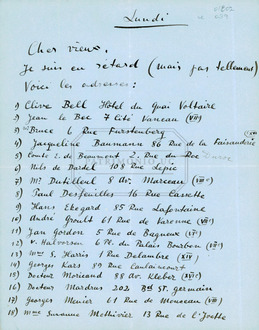 Lundi
Cher vieux,
Je suis en retard (mais pas tellement)
Voici les adresses:
1) Clive Bell Hôtel du Quai Voltaire
2) Jean le Bec 7 Cité Vaneau (VII)
3) Bruce 6 Rue Furstenberg
4) Jacqueline Baumann 86 Rue de la Faisanderie
5) Comte E. de Beaumont 2 Rue
6) Nils de Dardel 108 Rue Lepic
7) Mr Dutilleul 8 Av. Marceau
8) Paul Desfeuilles 16 Rue Cassette
9) Hans Ekegard 85 Rue Lafontaine
10) André Groult 61 Rue de Varenne (VII)
11) Jan Gordon 5 Rue de Bagneux
12) v. Halvorsen 6 Pl. du Palais Bourbon (VII)
13) Mme S. Harris 1 Rue Delambre (XIV)
14) Georges Kars 89 Rue Caulaincourt
15) Docteur Morinand 88 av. Kleber (XVI)
16) Docteur Mardrus 202 Bd St. Germain
17) Georges Menier 61 Rue de Monceau (VIII)
18) Mme Suzanne Methivier 13 Rue de l'Yvette